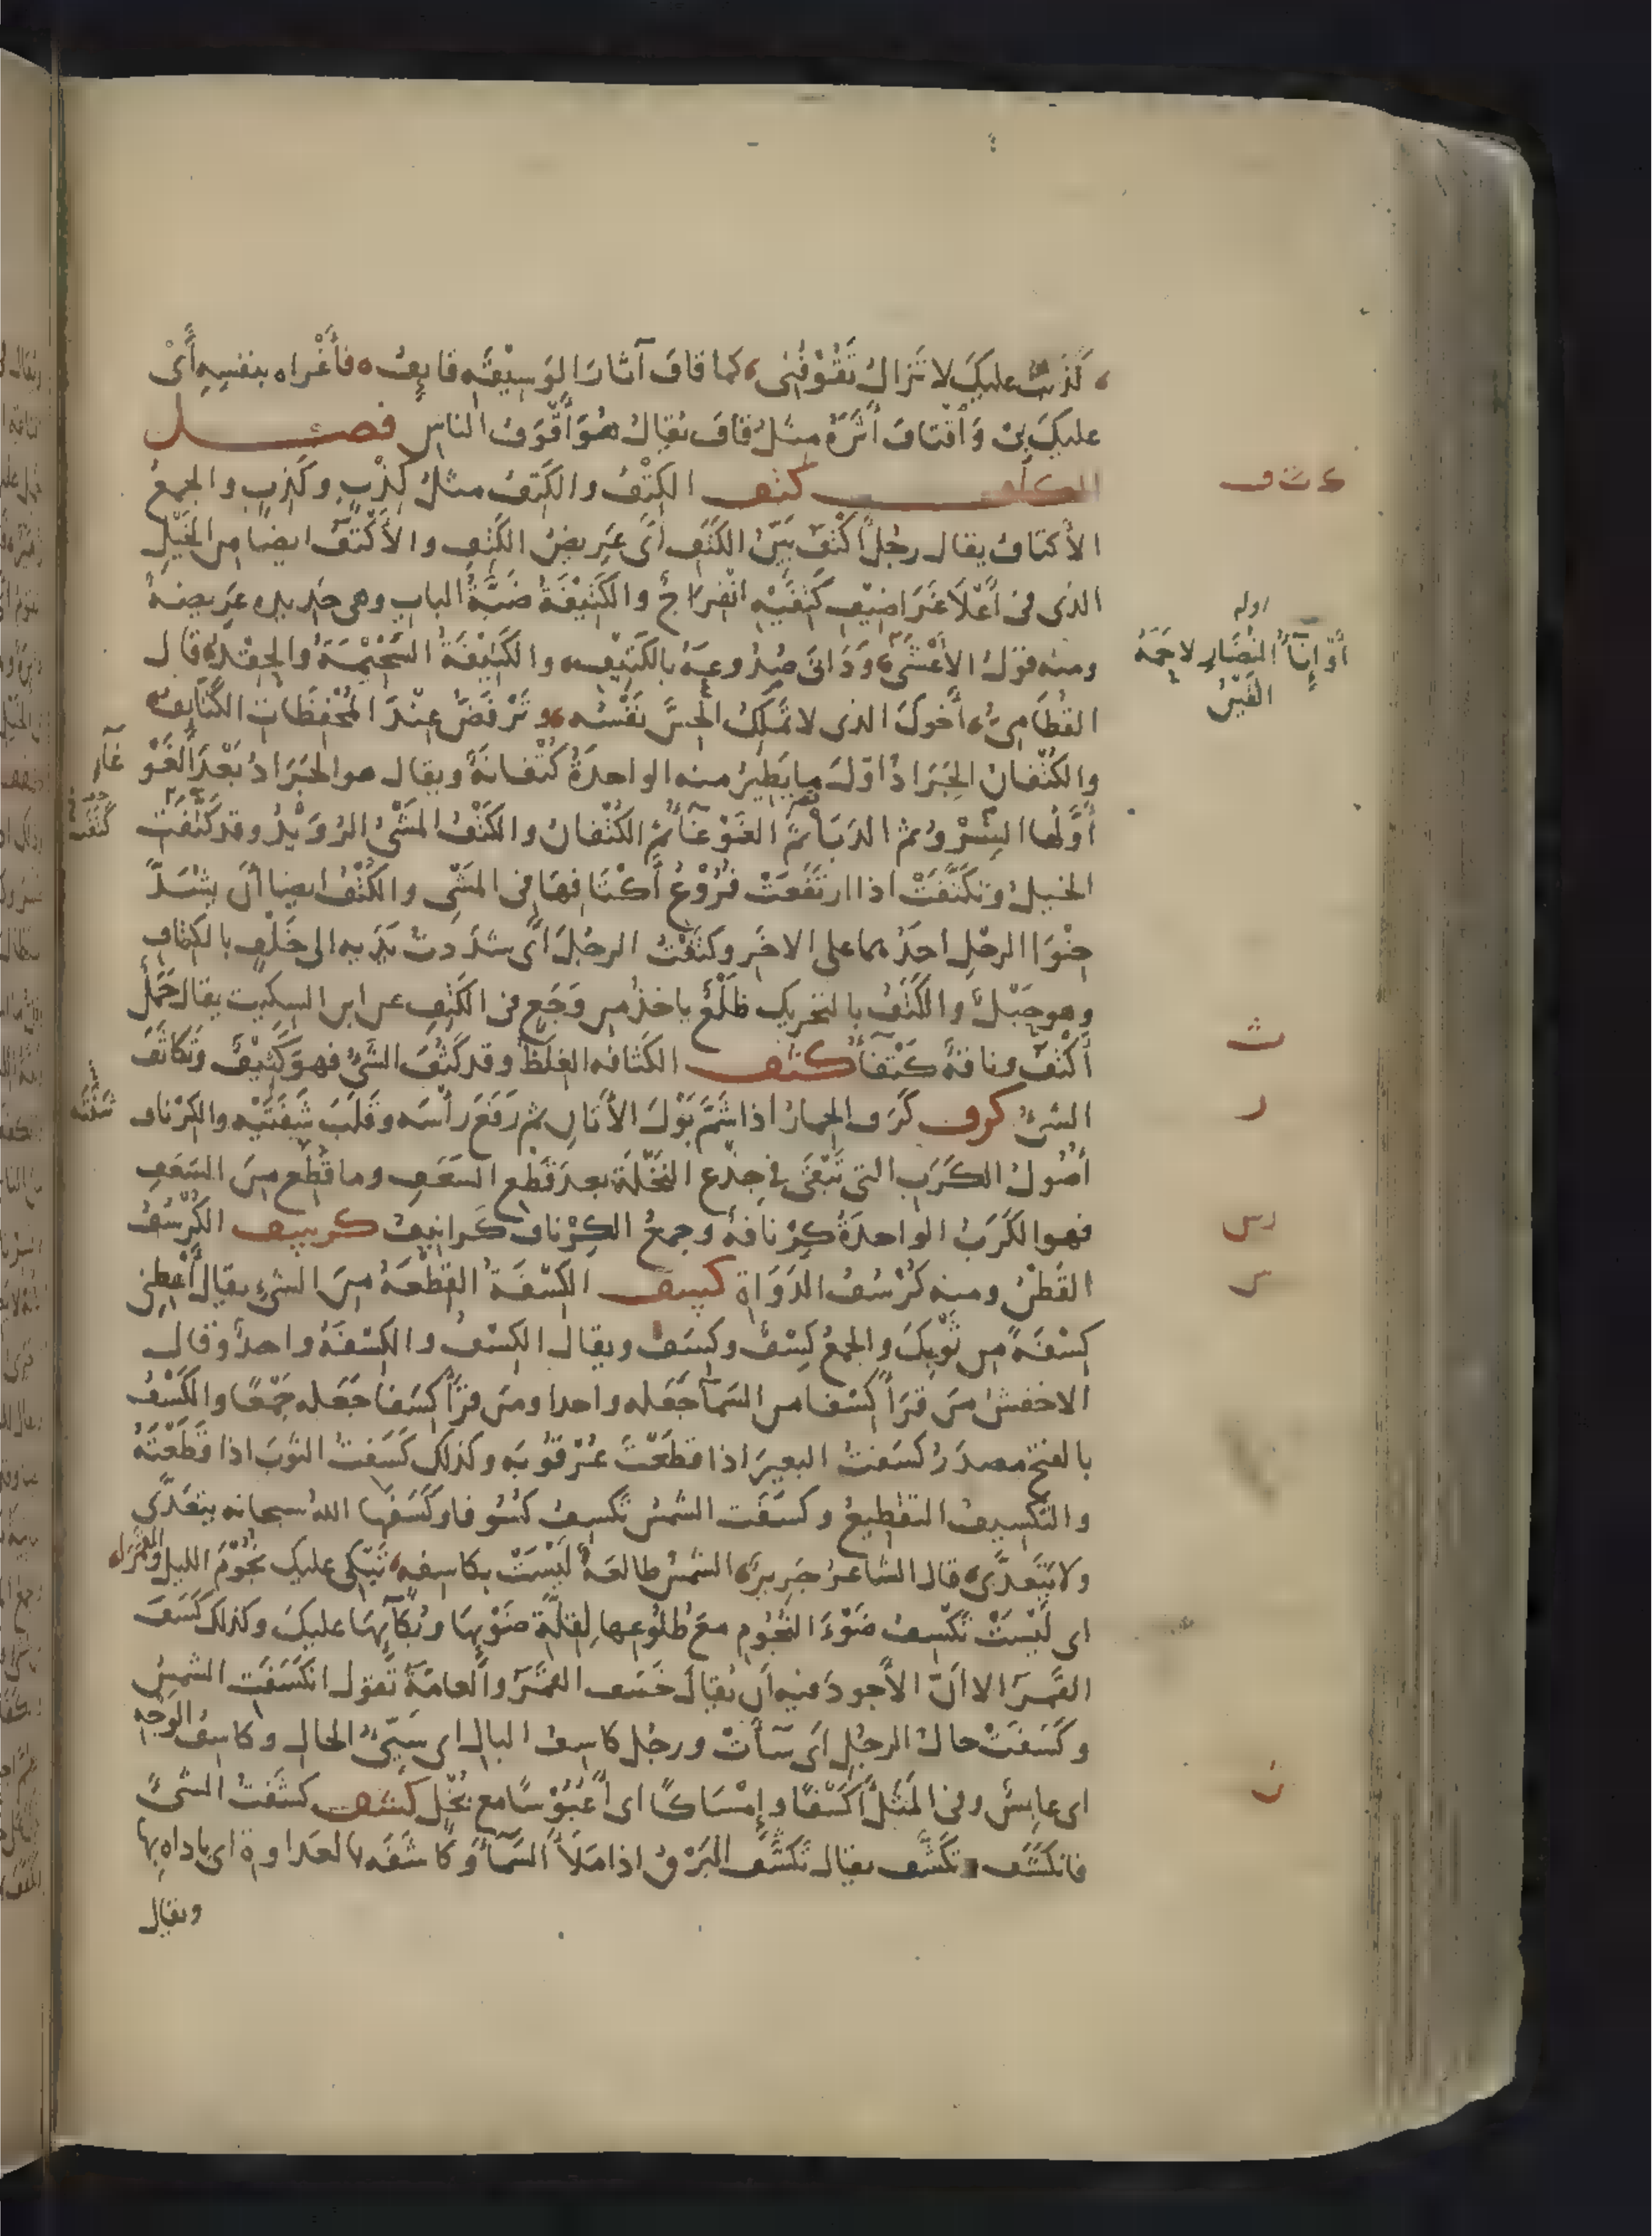 كَذَبْتُ عليكَ لا تَزالُ تَقُوْفُنِى كما قافَ آثارَ الوَسِيْقَهِ قايِفُ فأَغْراه بنفسِهِ أَىْ
عليكَ بِىْ وَاقْتافَ أَثَرَهُ مِثلُ قافَ يُقالُ هُوَ أَقْوَفُ الناسِ فصـــل
الكاف كتف الكِتْفُ والكَتِفُ مثلُ كِذْبٍ وكَذِبٍ والجمعُ
الأكتافُ يقال رجُلٌ أَكْتَفُ بَيِّنُ الكَتَفِ أىْ عَرِيضُ الكَتِفِ والأَكْتَفُ ايضًا مِن الخَيْلِ
الذى فى أَعْلَا غَرَاضِيْفِ كَتِفَيْهِ انْفِرَاجٌ والكَتِيْفَةُ ضَبَّةُ البابِ وهى حَدِيده عَرِيضةٌ
ومنه قوْلُ الأَعْشَى وَدَانَى صُدُوعَهُ بالكَتِيْفِ والكَتِيْفَةُ السَّخِيْمَةُ والحِقْدُ قال
القُطَامِىُّ أَخُوكَ الذى لا تَمْلِكُ الحِسَّ نَفْسُه وتَرْفَضُّ عِنْدَ المُحْفِظَاتِ الكَتَايِفُ
والكُتْفانُ الجَرَادُ اوّلَ ما يَطِيرُ منه الواحدَةُ كُتْفانَةٌ ويقال هو الجَرَادُ بَعْدَ الغَوْ
غآءِ
أَوَّلُها السِّرْوُ ثم الدَبَا ثمَّ الغَوْغآءُ ثمَّ الكُتْفانُ والكَتْفُ المَشْىُ الرُوَيْدُ وقد كَتَفَتْ
الخيلُ وتَكَتَّفَتْ اذا ارتَفَعَتْ فُرُوْعُ أَكْتَافِهَا فى المَشْىِ والكَتْفُ ايضا أنْ يشُدَّ
حِنْوَا الرحْلِ احدُهما على الاخَرِ وكتَفْتُ الرجُلَ أىْ شدَدتُ يَدَيه الى خَلْفٍ بالكِتافِ
وهو حَبْلٌ والكَتَفُ بالتحرِيك ظَلْعٌ ياخذُ مِن وَجَعٍ فى الكَتِفِ عن ابن السكيت يقال جَمَلٌ
أَكْتَفُ وناقةٌ كَتْفآءُ كثف الكثافه الغِلَظُ وقد كَثُفَ الشَىُ فهوَ كَثِيْفٌ وتَكاثَفَ
الشىُ كرف كَرَف الحِمارُ اذا شَمَّ بَوْلَ الأَتَانِ ثم رَفَعَ رأسَه وقَلَبَ شَفَتَيْه والكِرْناف
أُصُولُ الكَرَبِ التى تَبْقَى فى جِذْعِ النَّخْلَةِ بعدَ قَطْعِ السَعَفِ وما قُطِعَ مِنَ السَعَفِ
فهو الكَرَبُ الواحدَةُ كِرْنافةٌ وجمعُ الكِرْنافِ كَرانِيفُ كرسف الكُرْسُفُ
القُطْنُ ومنه كُرْسُفُ الدَوَاةِ كسف الكِسْفَةُ القِطْعَةُ مِنَ الشىِ يقال أَعْطِنِى
كِسْفَةً مِن ثَوْبِكَ والجمعُ كِسْفٌ وكِسَفٌ ويقالُ الكِسْفُ والكِسْفَةُ واحدٌ وقال
الاخفشُ مَن قَرَأَ كِسْفا من السَمآءِ جَعَله واحدا ومَن قرَأ كِسَفا جَعَله جَمْعًا والكَسْفُ
بالفتح مصدَرُ كسَفتُ البعيرَ اذا قطَعْتَ عُرْقُوبَه وكذلك كَسَفتُ الثوبَ اذا قطَعْتَهُ
والتكْسِيفُ التقطيعُ وكسَفَت الشمسُ تَكْسِفُ كُسُوفا وكَسَفَها اللهُ سبحانه يتعَدَّى
ولا يَتَعدَّى قال الشاعرُ جَرِيرٌ الشمسُ طالعةٌ لَيْسَتْ بِكاسِفه تَبْكِى عليك نُجُوْمَ الليل والقَمَرا
اى لَيْسَتْ تَكْسِفُ ضَوْءَ النُّجُومِ معَ طُلُوعِها لِقِلَّةِ ضَوْءِها وبُكَآئِهَا عليكَ وكذلك كَسَفَ
القَمَرُ الا انَّ الأَجودَ فيه أن يُقالَ خَسَف القَمَرُ والعامَّةُ تَقول انكَسَفَتِ الشمسُ
وكَسَفَتْ حالُ الرجُلِ اى سَآءَتْ ورجُل كاسِفُ البالِ اى سَيِّئُ الحالِ وكاسِفُ الوَجْهِ
اى عابِسٌ وفى المَثَلِ أَكَسْفًا وإِمْسَاكًا اى أَعُبُوْسًا مع بُخْلٍ كشف كشَفتُ الشىَ
فانكشَفَ وتكَشَّف يقال تكَشَّف البَرْقُ اذا مَلأَ السَمآءَ وكاشَفَه بالعَداوةِ اى باداه بها
ويقال
ك ت ف
اوله
أَوْ إِنَآءُ النُضَارِ لاحَمَهُ
القَيْنُ
ث
ر
رس
س
ش